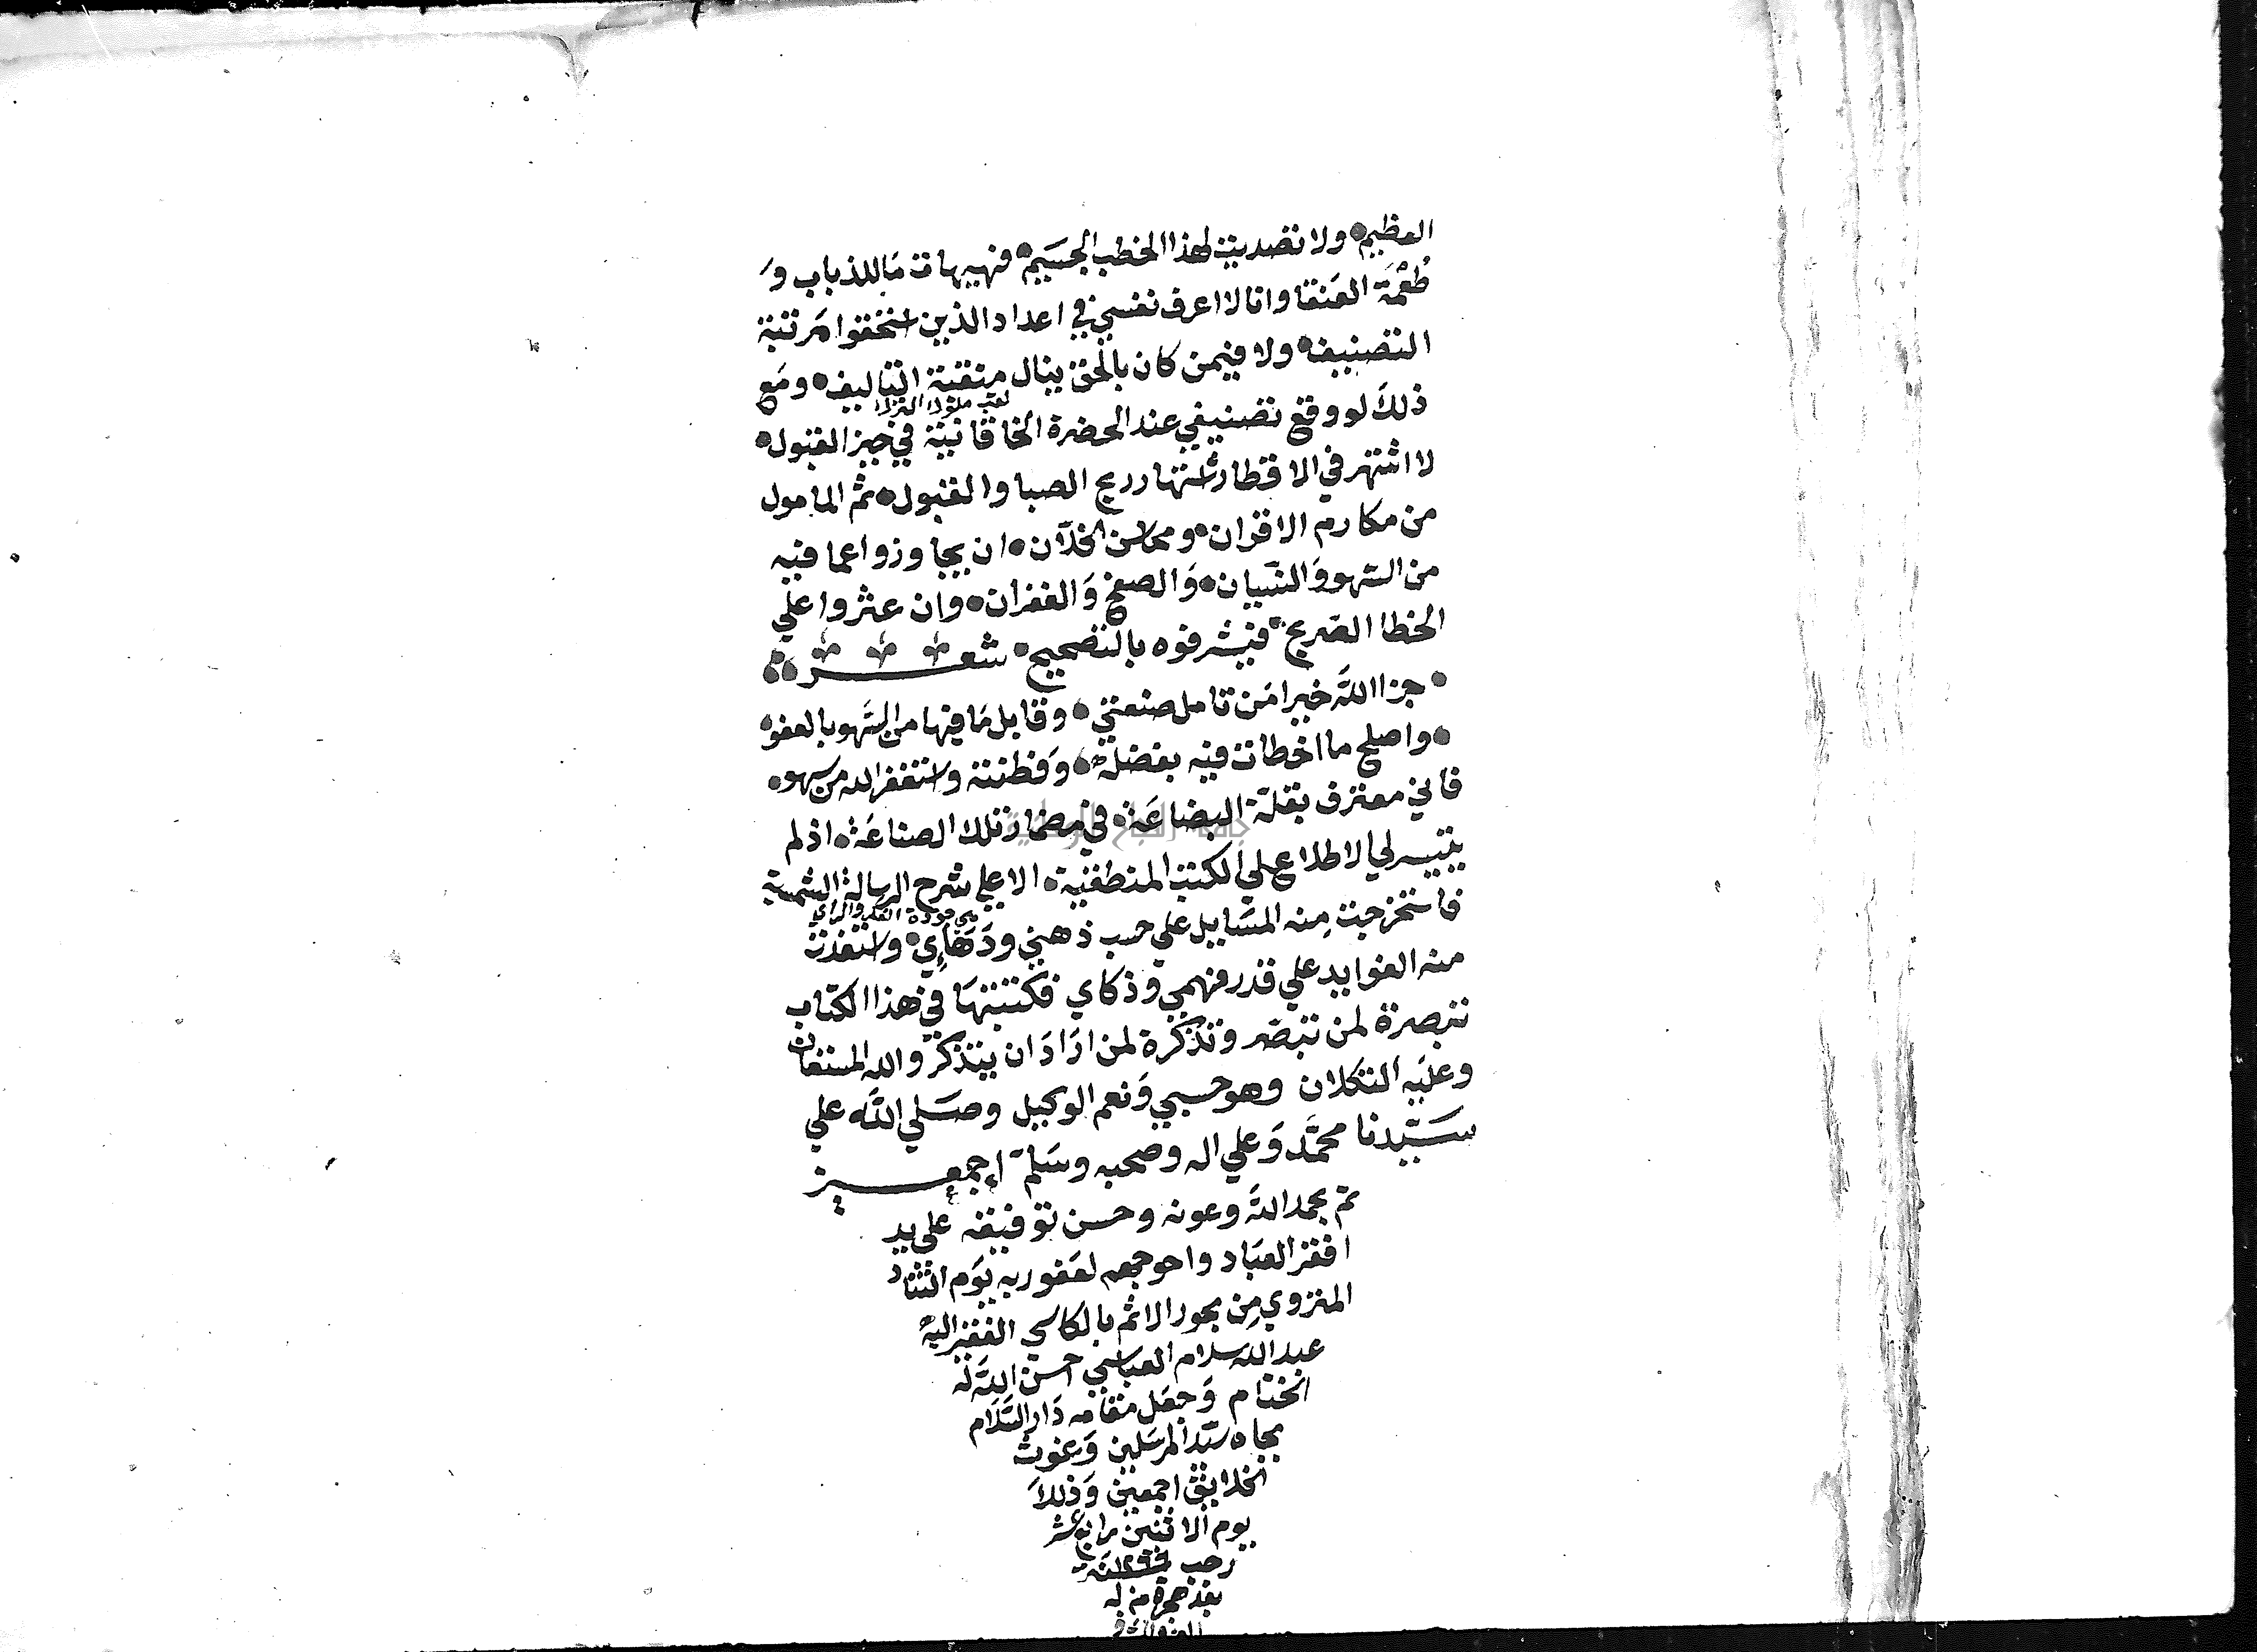 العظيم • ولا تصديت لهذا الخطب الجسيم • فهيهات ما للذباب و
طعمة العنقا وانا لا اعرف نفسي في اعداد الذين استحقوا مرتبة
التصنيف • ولا فيمن كان بالحق ينال منقبة التاليف • ومع
ذلك لو وقع تصنيفي عند الحضرة الخاقانية في حيز القبول •
لقب ملوك الترك
لا اشتهر في الاقطار اشتهار ريح الصبا والقبول • ثم المامول
من مكارم الاقران • ومحاسن الخلان • ان يجاوزوا عما فيه
من السهو والنسيان • والصفح والغفران • وان عثروا علي
الخطا الصريح • فيشرفوه بالتصحيح • شعر
• جزا الله خيرا من تامل صنعتي • وقابل ما فيها من السهو بالعفو •
• واصلح ما اخطات فيه بفضله • وفطنته واستغفر الله من سهو •
فاني معترف بقلة البضاعة • في مضمار تلك الصناعة • اذ لم
يتيسر لي الاطلاع علي الكتب المنطقية • الا علي شرح الرسالة الشمسية
فاستخرجت منه المسايل علي حسب ذهني ودهاءي • واستفدت
هي جودة الفكر والراي
منه الفوايد علي قدر فهمي وذكاي فكتبتها في هذا الكتاب
تبصرة لمن تبصر وتذكرة لمن اراد ان يتذكر والله المستعان
وعليه التكلان وهو حسبي ونعم الوكيل وصلي الله علي
سيدنا محمد وعلي اله وصحبه وسلم اجمعين
تم بحمد الله وعونه وحسن توفيقه علي يد
افقر العباد واحوجهم لعفو ربه يوم التناد
المنزوي من بحور الاثم بالكاسي الفقير اليه
عبد الله سلام العباسي احسن الله له
الختام وجعل مقامه دار السلام
بجاه سيد المرسلين وغوث
الخلايق اجمعين وذلك
يوم الاثنين رابع عشر
رجب سنة ١٢٩٩
بعد هجرة من له